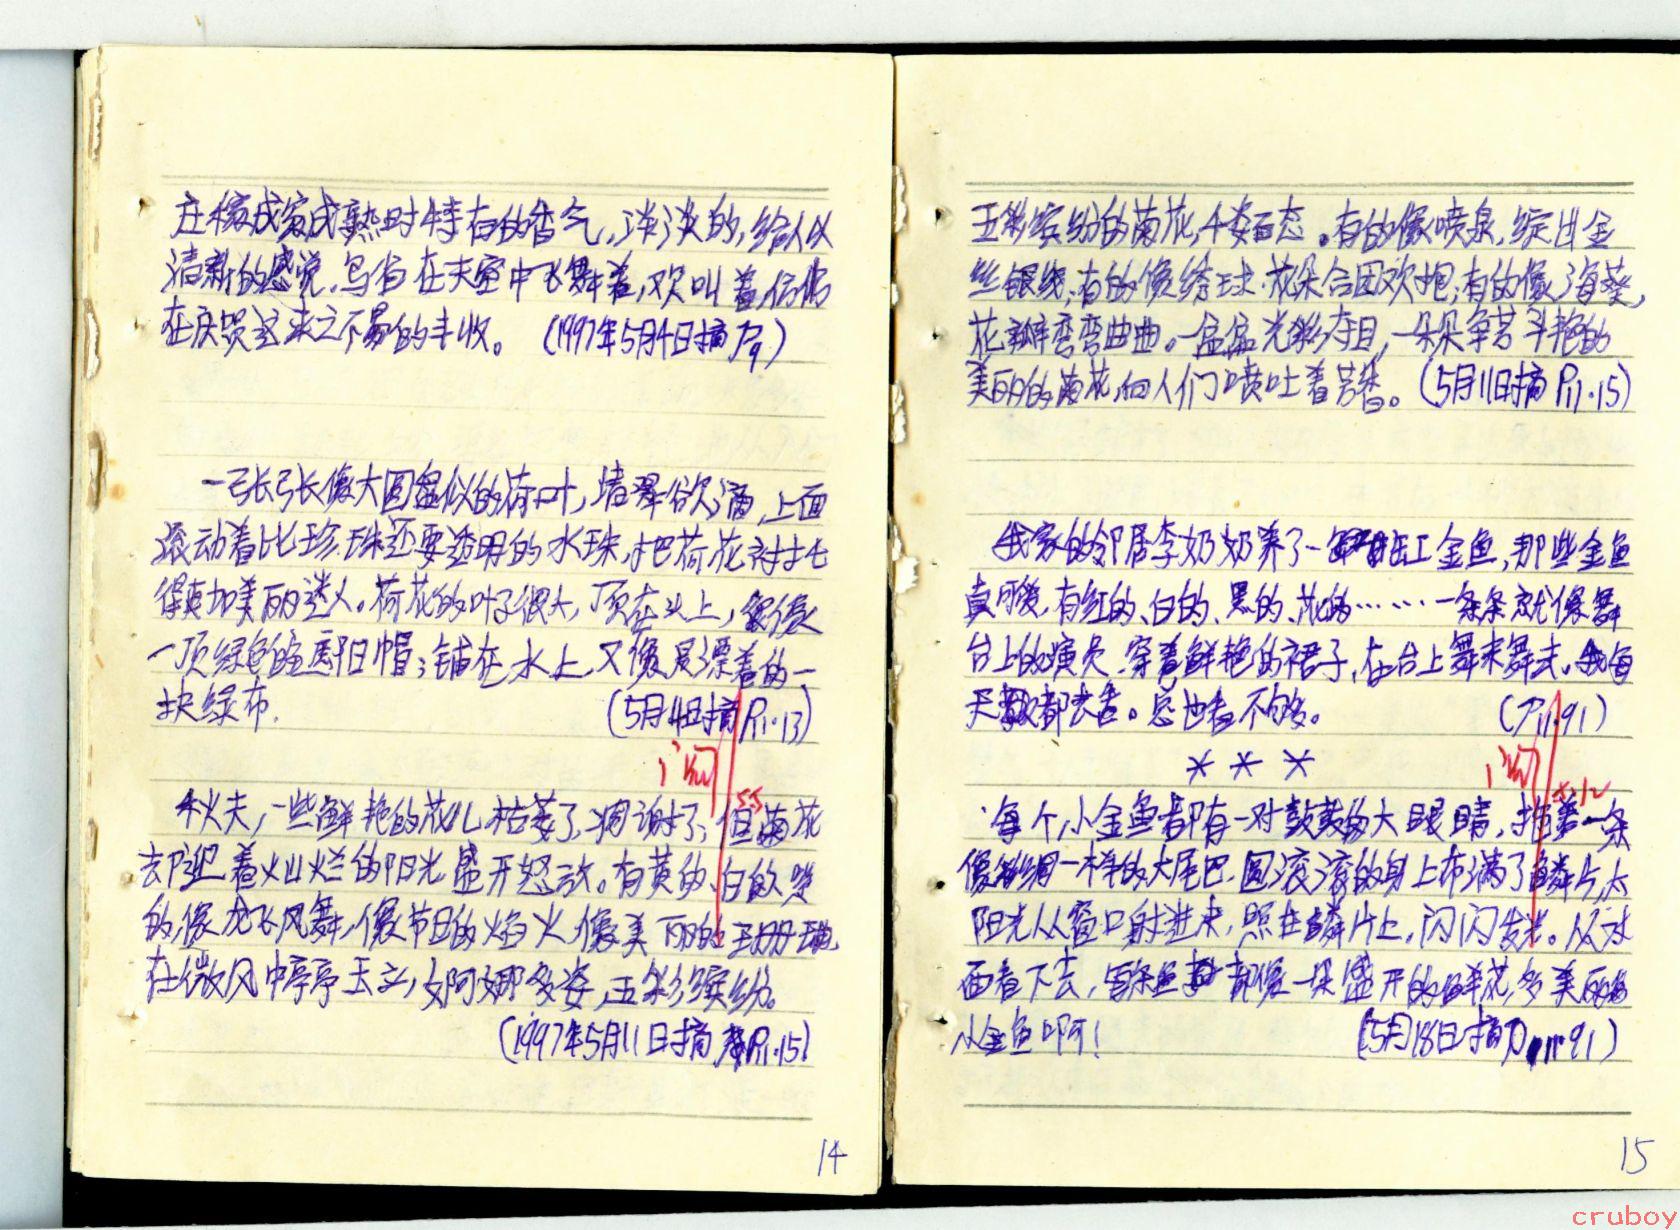 庄稼成家成熟时特有的香气,淡淡的,给人以
清新的感觉,鸟省在天空中飞舞着,欢叫着,仿佛
在庆贺这来之不易的丰收。(1997年5月4日摘P9)
一张张像大圆盘似的荷叶,青翠欲滴,上面
滚动着比珍珠还要透明的水珠,把荷花衬托
得更加美丽迷人。荷花的叶子很大,顶在头上,很像
一顶绿色的遮阳帽;铺在水上,又像是漂着的一
块绿布.
(5月4日摘P11.13)
阅
5.5
秋天,一些鲜艳的花儿枯萎了,凋谢了,但菊花
去迎着灿烂的阳光盛开怒放。有黄的、白的、紫
的,像龙飞凤舞,像节日的焰火,像美丽的珊瑚
在微风中亭亭玉立,婀娜多姿,五彩缤纷。
(1997年5月11日摘 P11.15)
14
五彩缤纷的菊花,千姿百态。有的像喷泉,绽出金
丝银线;有的像绣球,花朵合团欢抱;有的像海葵,
花瓣弯弯曲曲。一盆盆光彩夺目,一朵朵争芳斗艳的
美丽的菊花,向人们喷吐着芳香。(5月11日摘 P11.15)
我家的邻居李奶奶养了一缸金鱼,那些金鱼
真可爱,有红的、白的、黑的、花的……一条条就像舞
台上的演员,穿着鲜艳的裙子,在台上舞来舞去,我每
天都去看。总也看不够。
(P11.91)
阅
5.12
***
每个小金鱼都有一对鼓鼓的大眼睛,拖着一条
像彩绸一样的大尾巴,圆滚滚的身上布满了鳞片,太
阳光从窗口射进来,照在鳞片上,闪闪发光。从对
面看下去,每条鱼都像一朵盛开的鲜花,多美丽的
小金鱼啊!
(5月18日摘P11.91)
15
cruboy